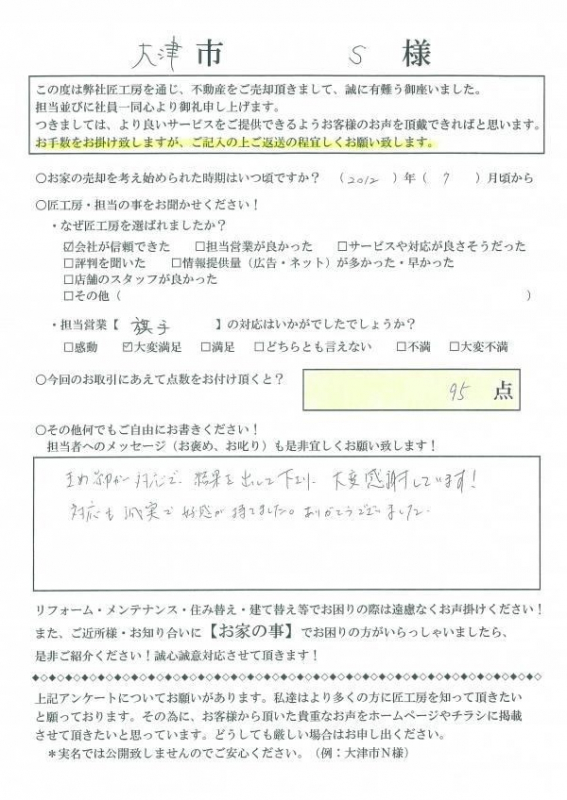 大津市 S 様
この度は弊社匠工房を通じ、不動産をご売却頂きまして、誠に有難う御座いました。
担当並びに社員一同心より御礼申し上げます。
つきましては、より良いサービスをご提供できるようお客様のお声を頂戴できればと思います。
お手数をお掛け致しますが、ご記入の上ご返送の程宜しくお願い致します。
○お家の売却を考え始められた時期はいつ頃ですか？ （2012 ）年（ 9 ）月頃から
○匠工房・担当の事をお聞かせください！
・なぜ匠工房を選ばれましたか？
☑会社が信頼できた □担当営業が良かった □サービスや対応が良さそうだった
□評判を聞いた □情報提供量（広告・ネット）が多かった・早かった
□店舗のスタッフが良かった
□その他（ ）
・担当営業【 旗手 】の対応はいかがでしたでしょうか？
□感動 ☑大変満足 □満足 □どちらとも言えない □不満 □大変不満
○今回のお取引にあえて点数をお付け頂くと？ 95 点
○その他何でもご自由にお書きください！
担当者へのメッセージ（お褒め、お叱り）も是非宜しくお願い致します！
対応で、結果を出して下さり、大変感謝しています！
対応も誠実で好感が持てました。ありがとうございました。
リフォーム・メンテナンス・住み替え・建て替え等でお困りの際は遠慮なくお声掛けください！
また、ご近所様・お知り合いに【お家の事】でお困りの方がいらっしゃいましたら、
是非ご紹介ください！誠心誠意対応させて頂きます！
上記アンケートについてお願いがあります。私達はより多くの方に匠工房を知って頂きたい
と願っております。その為に、お客様から頂いた貴重なお声をホームページやチラシに掲載
させて頂きたいと思っています。どうしても厳しい場合はお申し出ください。
＊実名では公開致しませんのでご安心ください。（例：大津市N様）